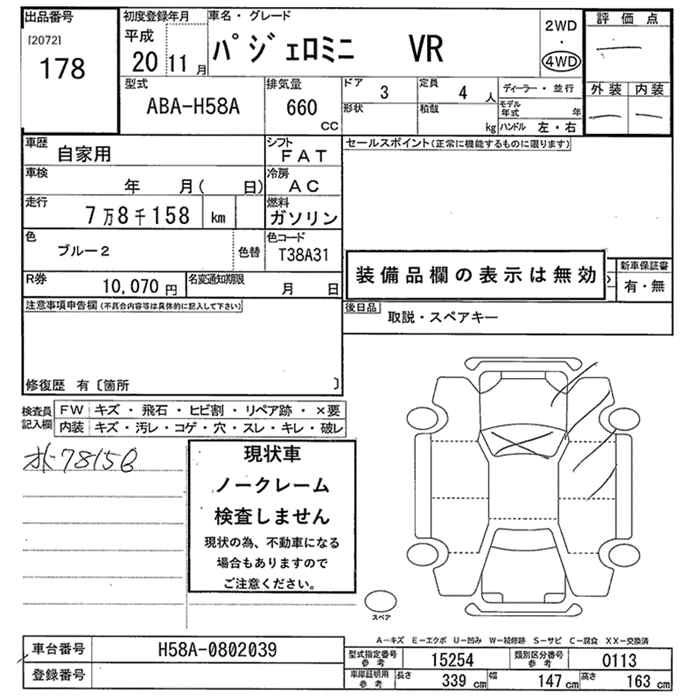 出品番号
[2072]
178
初度登録年月
平成
20 11 月
車名・グレード
パジェロミニ VR
2WD
・
4WD
評価点
外装 内装
型式
ABA-H58A
排気量
660
CC
ドア 3
形状
定員 4 人
積載 kg
ディーラー・並行
モデル年式 年
ハンドル 左・右
車歴
自家用
シフト
FAT
車検
年 月( 日)
冷房
AC
走行
7万8千158 km
燃料
ガソリン
色
ブルー2
色替
色コード
T38A31
R券
10,070 円
名変通知期限
月 日
セールスポイント(正常に機能するものに限ります)
装備品欄の表示は無効
新車保証書
有・無
後日品
取説・スペアキー
注意事項申告欄(不具合内容等は具体的に記入して下さい)
修復歴 有〔箇所 〕
検査員記入欄
FW キズ・飛石・ヒビ割・リペア跡・×要
内装 キズ・汚レ・コゲ・穴・スレ・キレ・破レ
78156
現状車
ノークレーム
検査しません
現状の為、不動車になる
場合もありますので
ご注意ください。
スペア
A-キズ E-エクボ U-凹み W-補修跡 S-サビ C-腐食 XX-交換済
車台番号
H58A-0802039
登録番号
型式指定番号 参考
15254
類別区分番号 参考
0113
車庫証明用 参考
長さ 339 cm
幅 147 cm
高さ 163 cm